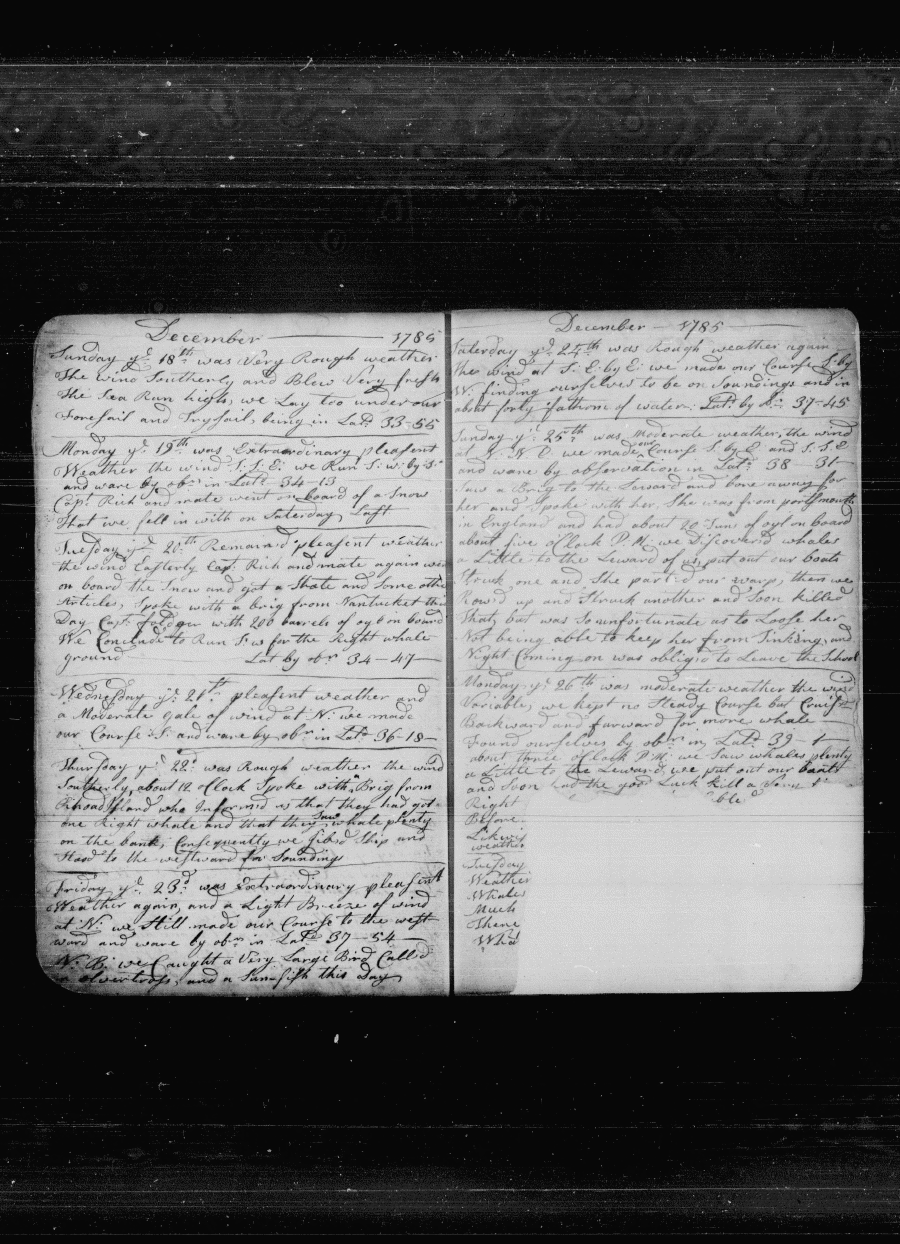 December 1785
Sunday ye 18th was Very Rough weather
The wind Southerly and Blew Very fresh
The Sea Run high, we Lay too under our
Foresail and Trysail, being in Latd 33-55
Monday ye 19th was Extraordinary pleasent
Weather the wind S.S.E. we Run S.w. by S.
and ware by obn in Latd 34-13
Capt Rich and mate went on board of a Snow
That we fell in with on Saterday Last
Tuesday ye 20th Remaind pleasent weather
the wind Easterly Capt Rich and mate again
on board the Snow and got a Skate and Some
Articles, Spoke with a brig from Nantucket this
Day Capt Foldger with 200 barrels of oyl on board
We Conclude to Run S.w for the Right whale
ground Lat by obn 34-47
Wednesday ye 21st pleasent weather and
a Moderate gale of wind at N. we made
our Course S. and ware by obn in Latd 36-18
Thursday ye 22d was Rough weather the wind
Southerly, about 12 oClock Spoke with a Brig from
Rhoad Island who Informd us that they had got
one Right whale and that they Saw whale plenty
on the bank, Consequently we Ship and
Stood to the westward for Soundings
Friday ye 23d was Extraordinary pleasent
Weather again, and a Light Breeze of wind
at N. we Still made our Course to the west
ward and ware by obn in Latd 37-54
N. B. we Caught a Very Large Bird Calld
and a Sun-fish this Day
December 1785
Saterday ye 24th was Rough weather again
the wind at S.E. by E. we made our Course S. by
W. finding ourselves to be on Soundings and in
about forty fathom of water. Latd by 37-45
Sunday ye 25th was Moderate weather, the wind
at we made our Course S. by E. and S.S.E
and ware by observation in Latd 38 31
Saw a Brig to the Leward and bore away for
her and Spoke with her, She was from portsmouth
in England and had about 20 Tuns of oyl on board
about five oClock P.M. we Discoverd whales
a Little to the Leward of us, put out our boats
Struck one and She parted our warp, then we
Row'd up and Struck another and Soon killed
That, but was So unfortunate as to Loose her
Not being able to keep her from Sinking, and
Night Coming on was obligd to Leave the School
Monday ye 26th was moderate weather the wind
Variable, we kept no Steady Course but Cruisd
Backward and forward for more whale
Found ourselves by obn in Latd 39 1
about three oClock P.M. we Saw whales plenty
a Little to the Leward, we put out our boats
and Soon had the good Luck kill a
Right
Before
Likewi
weather
Tuesday
Weather
Whales
Much
There